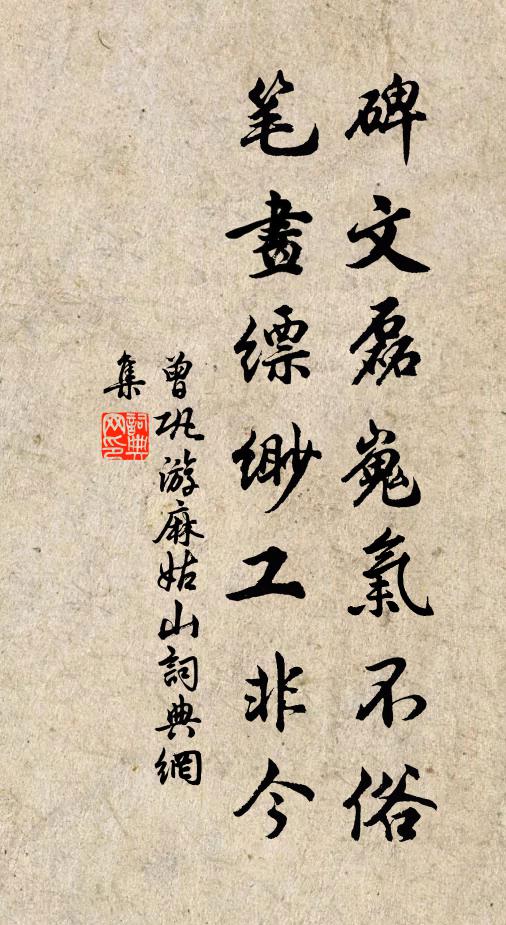 碑文磊嵬氣不俗
笔畫缥缈工非今
曾巩游麻姑山詞典網
集
詞典
网印